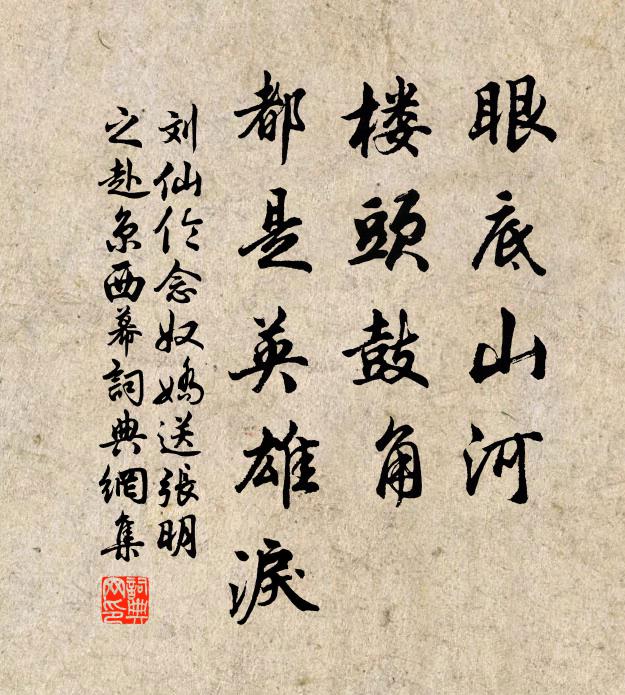 眼底山河
楼頭鼓角
都是英雄淚
刘仙伦念奴嬌送張明
之赴京西幕詞典網集
詞典
网印